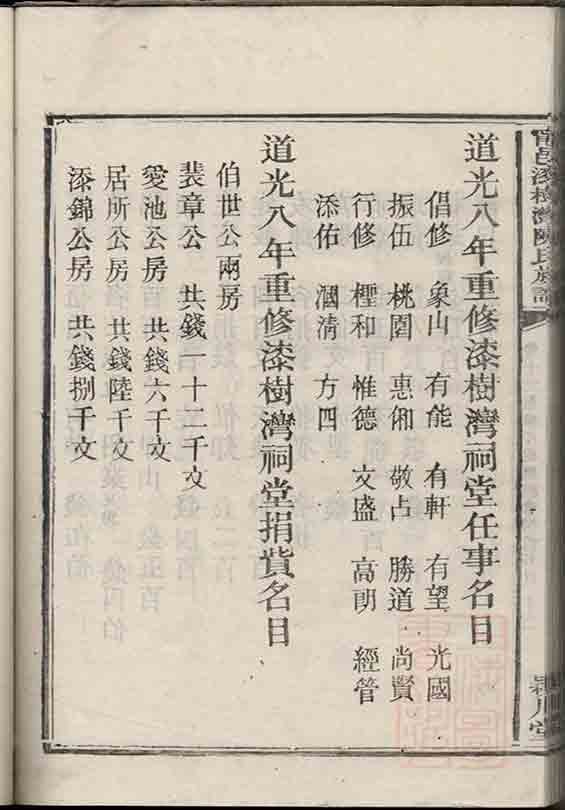 道光八年重修漆樹灣祠堂任事名目
倡修 象山 有能 有軒 有望 光國
振伍 桃園 惠 敬占 勝道 尚賢
行修 和 惟德 文盛 高朗 經管
添佑 清 方四
道光八年重修漆樹灣祠堂捐貲名目
伯世公兩房
裴章公 共錢一十二千文
愛池公房 共錢六千文
居所公房 共錢陸千文
添錦公房 共錢捌千文
邑漆樹灣陳氏族譜
潁川堂